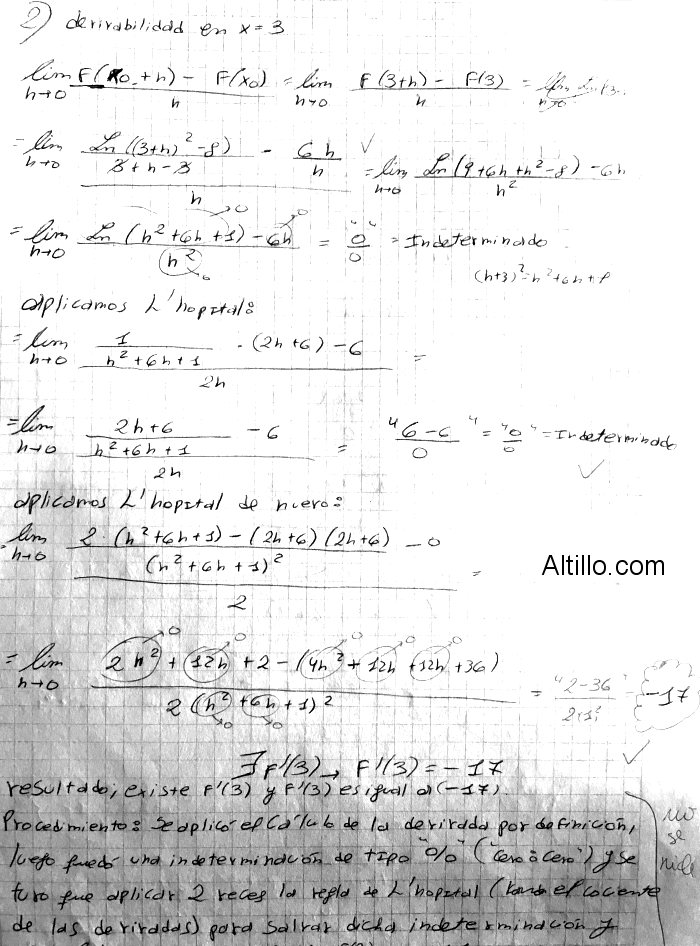 2) derivabilidad en x = 3
lim h→0 (F(x0 + h) - F(x0)) / h = lim h→0 (F(3+h) - F(3)) / h =
= lim h→0 (Ln((3+h)² - 8) / (3 + h - 3) - 6h/h) / h ✓ = lim h→0 (Ln(9+6h+h²-8) - 6h) / h²
= lim h→0 (Ln(h²+6h+1) - 6h) / h² = "0/0" = Indeterminado
aplicamos L'hopital:
= lim h→0 (1/(h²+6h+1) · (2h+6) - 6) / 2h =
= lim h→0 ((2h+6)/(h²+6h+1) - 6) / 2h = "(6-6)/0" = "0/0" = Indeterminado ✓
aplicamos L'hopital de nuevo:
lim h→0 ((2·(h²+6h+1) - (2h+6)(2h+6)) / (h²+6h+1)² - 0) / 2 =
Altillo.com
= lim h→0 (2h² + 12h + 2 - (4h² + 12h + 12h + 36)) / 2(h² + 6h + 1)² = "(2-36)/2·1²" = -17 ✓
∃ F'(3) → F'(3) = -17
resultado; existe F'(3) y F'(3) es igual a (-17).
Procedimiento: Se aplicó el Cálculo de la derivada por definición,
luego quedó una indeterminación de tipo "0/0" ("cero a cero") y se
tuvo que aplicar 2 veces la regla de L'hopital ( el cociente
de las derivadas) para salvar dicha indeterminación y
no
se
pide